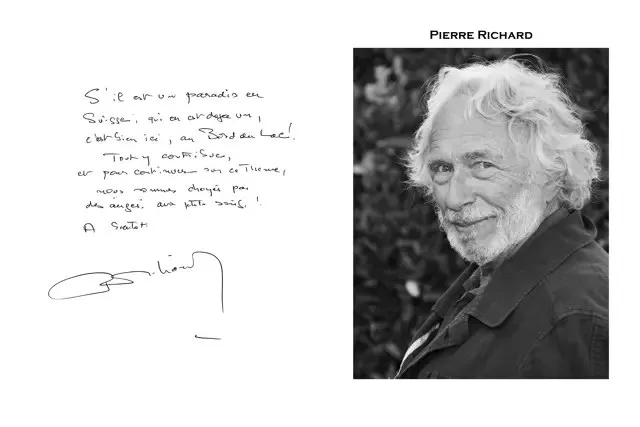 S'il est un paradis en
Suisse, qui en est deja un,
c'est bien ici, au Bord du Lac!
Tout y contribue,
et pour continuer sur ce theme,
nous sommes choyés par
des anges, aux ptits soins!
A bientot
PIERRE RICHARD